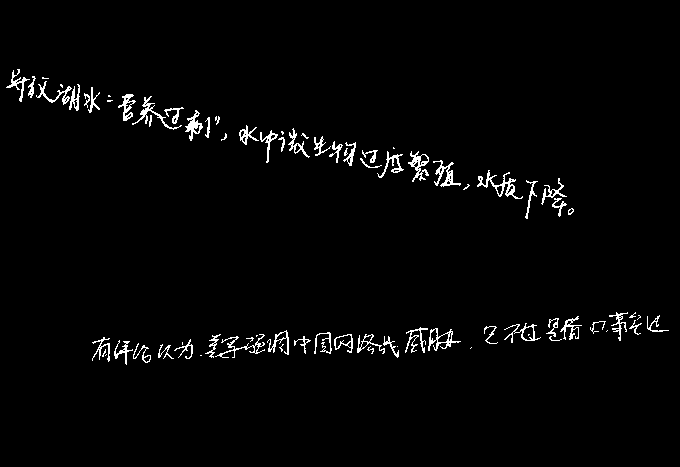 导致湖水“营养过剩”,水中微生物过度繁殖,水质下降。
有评论认为,美军强调中国网络战威胁,只不过是借口萧宏过